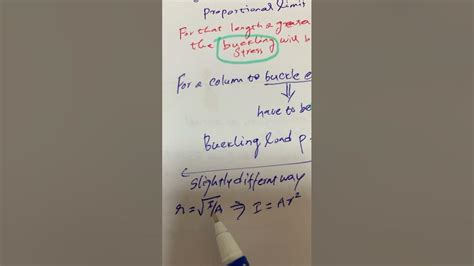 Proportional limit
For that length & grea
the buckling will b
stress
For a column to buckle e
⇓
have to be
Buckling load P
Slightly different way
r = √I/A ⇒ I = Ar²